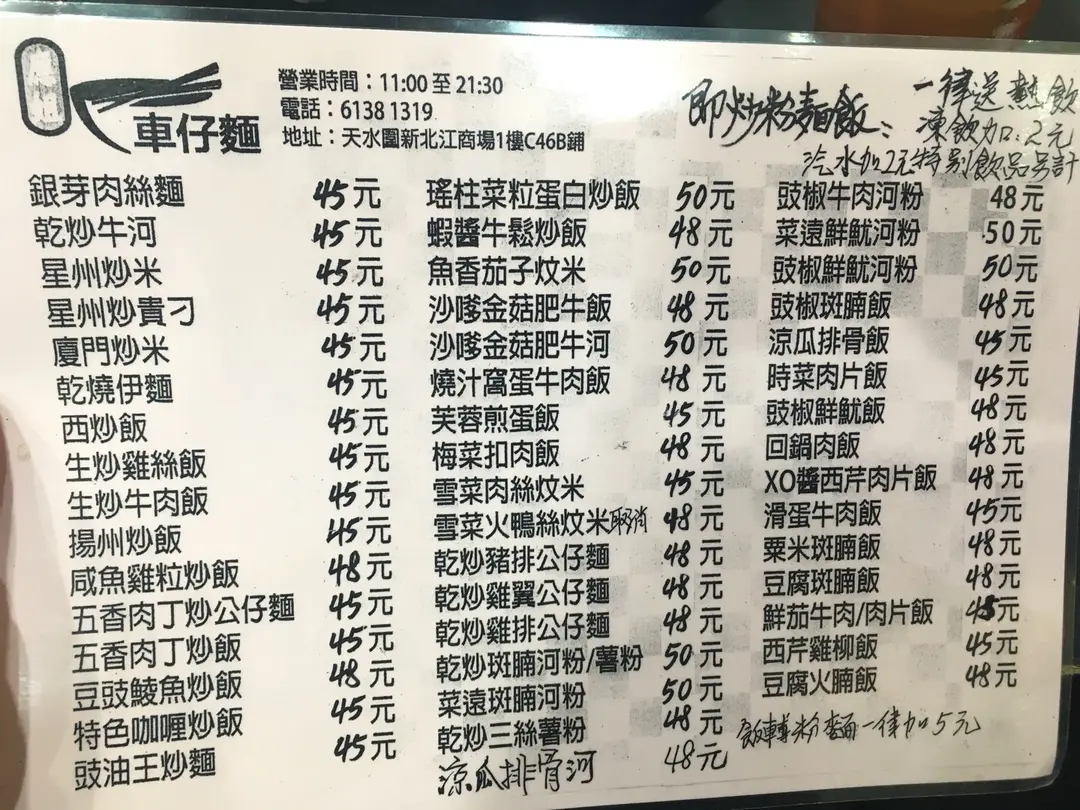 車仔麵
營業時間：11:00 至 21:30
電話：6138 1319
地址：天水圍新北江商場1樓C46B鋪
即炒粉麵飯：
一律送熱飲
凍飲加：2元
汽水加2元特別飲品另計
銀芽肉絲麵 45元
乾炒牛河 45元
星州炒米 45元
星州炒貴刁 45元
廈門炒米 45元
乾燒伊麵 45元
西炒飯 45元
生炒雞絲飯 45元
生炒牛肉飯 45元
揚州炒飯 45元
咸魚雞粒炒飯 48元
五香肉丁炒公仔麵 45元
五香肉丁炒飯 45元
豆豉鯪魚炒飯 48元
特色咖喱炒飯 45元
豉油王炒麵 45元
瑤柱菜粒蛋白炒飯 50元
蝦醬牛鬆炒飯 48元
魚香茄子炆米 50元
沙嗲金菇肥牛飯 48元
沙嗲金菇肥牛河 50元
燒汁窩蛋牛肉飯 48元
芙蓉煎蛋飯 45元
梅菜扣肉飯 48元
雪菜肉絲炆米 45元
雪菜火鴨絲炆米取消 48元
乾炒豬排公仔麵 48元
乾炒雞翼公仔麵 48元
乾炒雞排公仔麵 48元
乾炒斑腩河粉/薯粉 50元
菜遠斑腩河粉 50元
乾炒三絲薯粉 48元
涼瓜排骨河 48元
豉椒牛肉河粉 48元
菜遠鮮魷河粉 50元
豉椒鮮魷河粉 50元
豉椒斑腩飯 48元
涼瓜排骨飯 45元
時菜肉片飯 45元
豉椒鮮魷飯 48元
回鍋肉飯 48元
XO醬西芹肉片飯 48元
滑蛋牛肉飯 45元
粟米斑腩飯 48元
豆腐斑腩飯 48元
鮮茄牛肉/肉片飯 45元
西芹雞柳飯 45元
豆腐火腩飯 48元
飯轉粉麵一律加5元